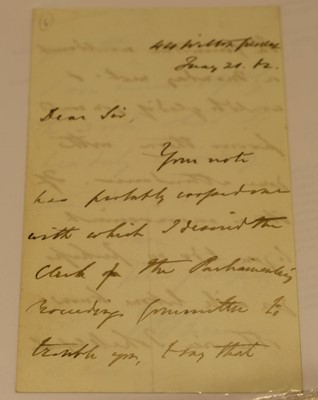 44 Wilton Crescent
May 20. 82.
Dear Sir,
Your note
has probably crossed one
with which I desired the
Clerk of the Parliamentary
Proceedings Committee to
trouble you, to say that